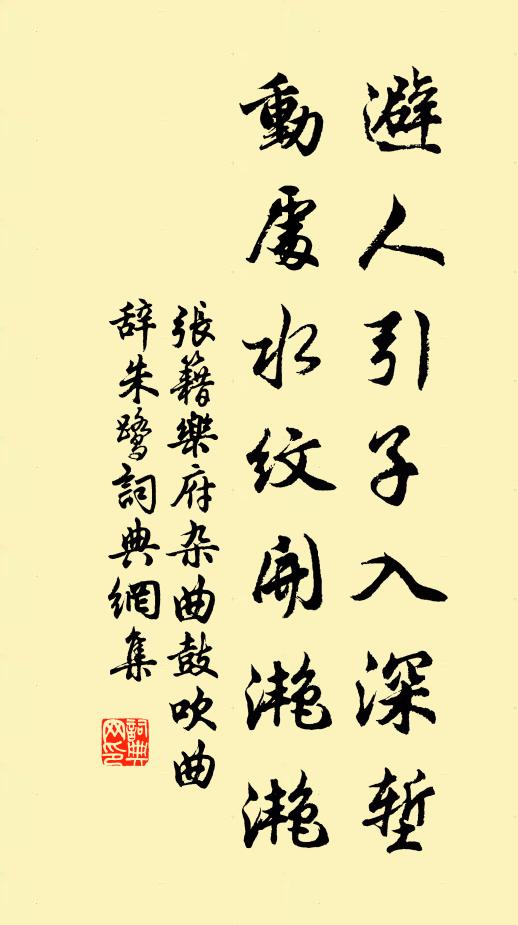 避人引子入深塹
動處水紋開灩灩
張籍樂府杂曲鼓吹曲
辞朱鹭詞典網集
詞典
网印